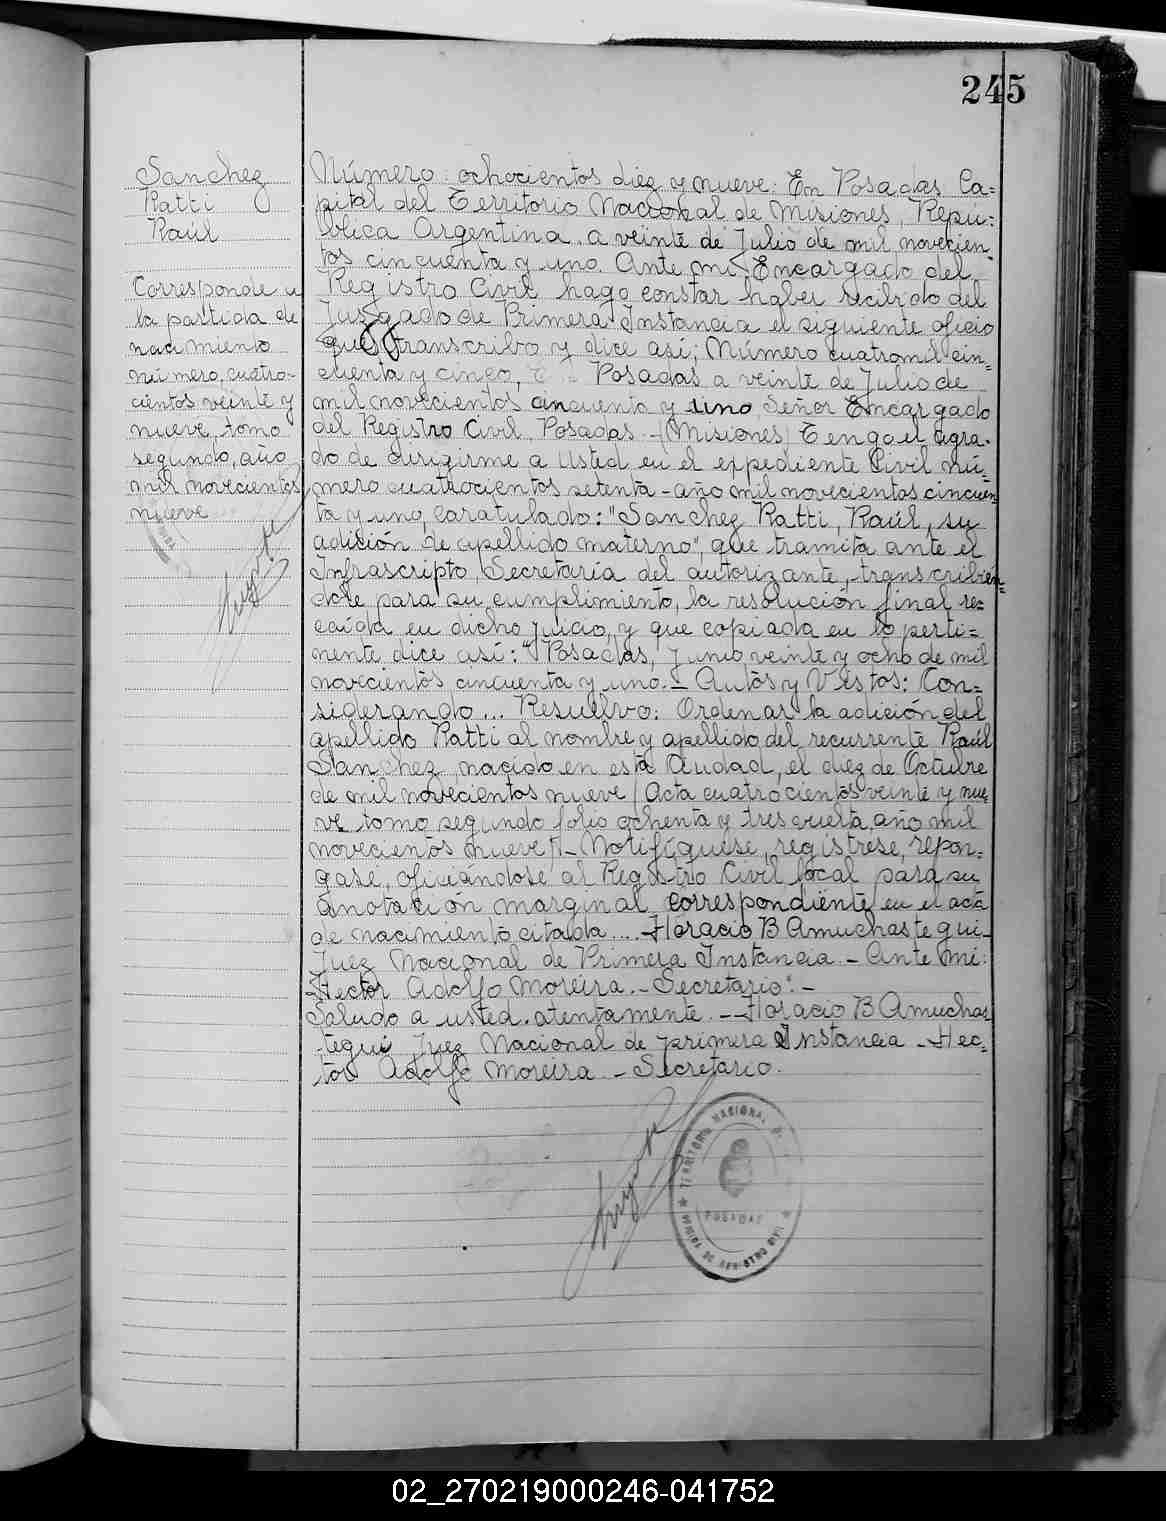 245
Sanchez
Ratti
Raúl
Corresponde a
la partida de
nacimiento
número, cuatro-
cientos veinte y
nueve, tomo
segundo, año
mil novecientos
nueve
Número: ochocientos diez y nueve: En Posadas Ca=
pital del Territorio Nacional de Misiones, Repú:
blica Argentina, a veinte de Julio de mil novecien
tos cincuenta y uno. Ante mí Encargado del
Registro Civil, hago constar haber recibido del
Juzgado de Primera Instancia el siguiente oficio
que transcribo y dice así; Número cuatromil cin=
cuenta y cinco, Posadas a veinte de Julio de
mil novecientos cincuenta y uno, Señor Encargado
del Registro Civil, Posadas - (Misiones) Tengo el agra-
do de dirigirme a Usted en el expediente Civil nú=
mero cuatrocientos setenta - año mil novecientos cincuen
ta y uno, caratulado: "Sanchez Ratti, Raúl, su
adición de apellido materno", que tramita ante el
Infrascripto, Secretaría del autorizante, transcribien=
dole para su cumplimiento, la resolución final re=
caída en dicho juicio, y que copiada en lo perti=
nente dice así: "Posadas, Junio veinte y ocho de mil
novecientos cincuenta y uno. - Autos y Vistos: Con=
siderando... Resuelvo: Ordenar la adición del
apellido Ratti al nombre y apellido del recurrente Raúl
Sanchez nacido en esta Ciudad, el diez de Octubre
de mil novecientos nueve (Acta cuatrocientos veinte y nue=
ve tomo segundo folio ochenta y tres vuelta, año mil
novecientos nueve). - Notifíquese, regístrese, repon=
gase, oficiándose al Registro Civil local para su
anotación marginal correspondiente en el acta
de nacimiento citada... - Horacio B Amuchastegui -
Juez Nacional de Primera Instancia - Ante mí:
Hector Adolfo Moreira. - Secretario". -
Saludo a usted atentamente. - Horacio B Amuchas
tegui Juez Nacional de primera Instancia - Hec=
tor Adolfo Moreira - Secretario.
TERRITORIO NACIONAL
POSADAS
REGISTRO CIVIL
02_270219000246-041752